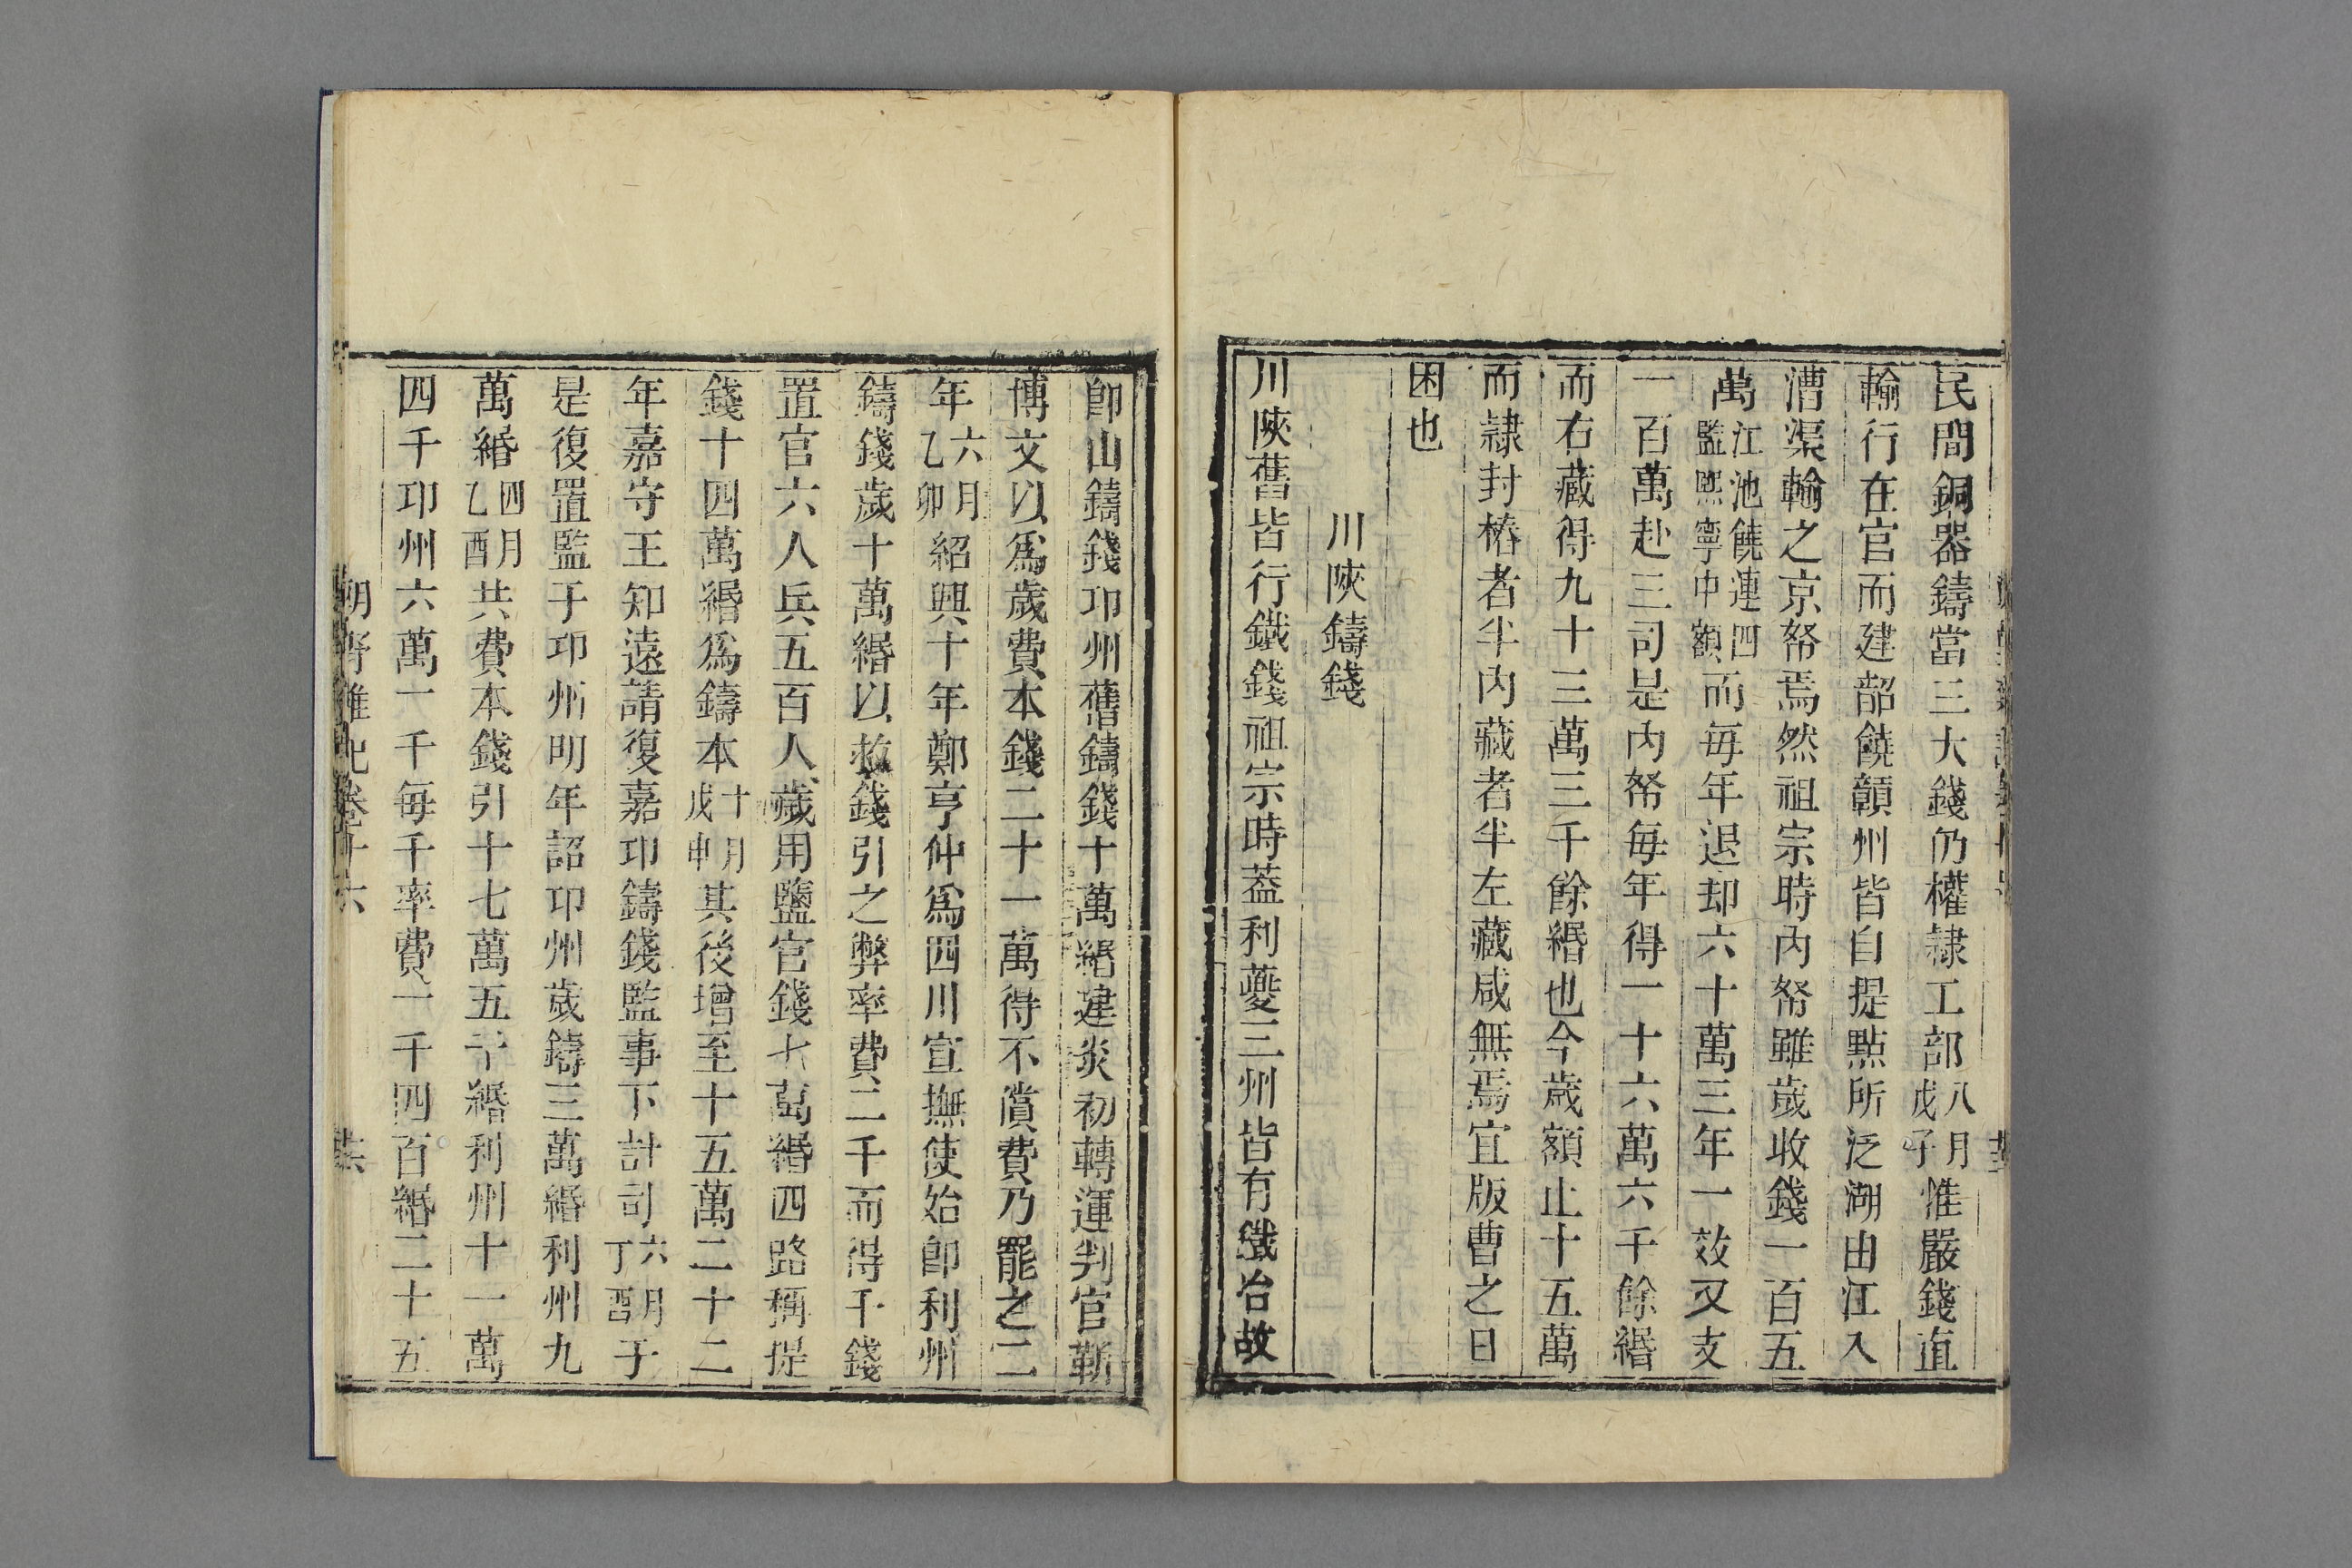 民間銅器鑄當三大錢仍權隸工部八月戊子惟嚴錢直
輸行在官而建韶饒贑州皆自提點所泛湖由江入
漕渠輸之京帑焉然祖宗時内帑雖歲收錢一百五
萬江池饒連四監熙寧中額而每年退却六十萬三年一效又支
一百萬赴三司是内帑每年得一十六萬六千餘緡
而右藏得九十三萬三千餘緡也今歲額止十五萬
而隸封樁者半内藏者半左藏咸無焉宜版曹之日
困也
川陝鑄錢
川陝舊皆行鐵錢祖宗時葢利夔三州皆有鐵冶故
卽山鑄錢卭州舊鑄錢十萬緡建炎初轉運判官靳
博文以爲歲費本錢二十一萬得不償費乃罷之二
年六月乙卯紹興十年鄭亨仲爲四川宣撫使始卽利州
鑄錢歲十萬緡以救錢引之弊率費二千而得千錢
置官六人兵五百人歲用鹽官錢七萬緡四路稱提
錢十四萬緡爲鑄本十月戊申其後增至十五萬二十二
年嘉守王知遠請復嘉卭鑄錢監事下計司六月丁酉于
是復置監于卭州明年詔卭州歲鑄三萬緡利州九
萬緡四月乙酉共費本錢引十七萬五千緡利州十一萬
四千卭州六萬一千每千率費一千四百緡二十五
朝野雜記卷十六